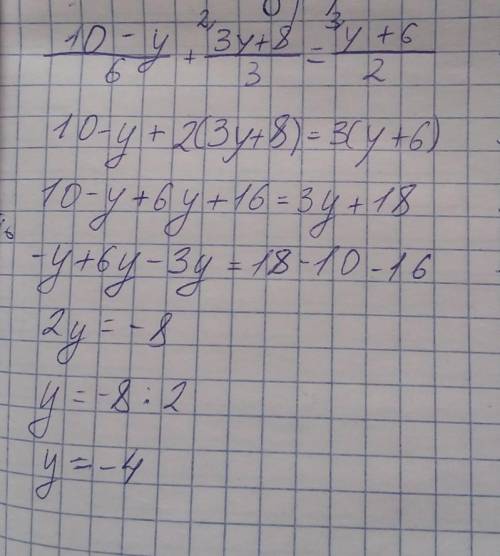 (10-y)/6 + ²(3y+8)/3 = ³(y+6)/2
10-y+2(3y+8)=3(y+6)
10-y+6y+16=3y+18
-y+6y-3y=18-10-16
2y=-8
y=-8:2
y=-4